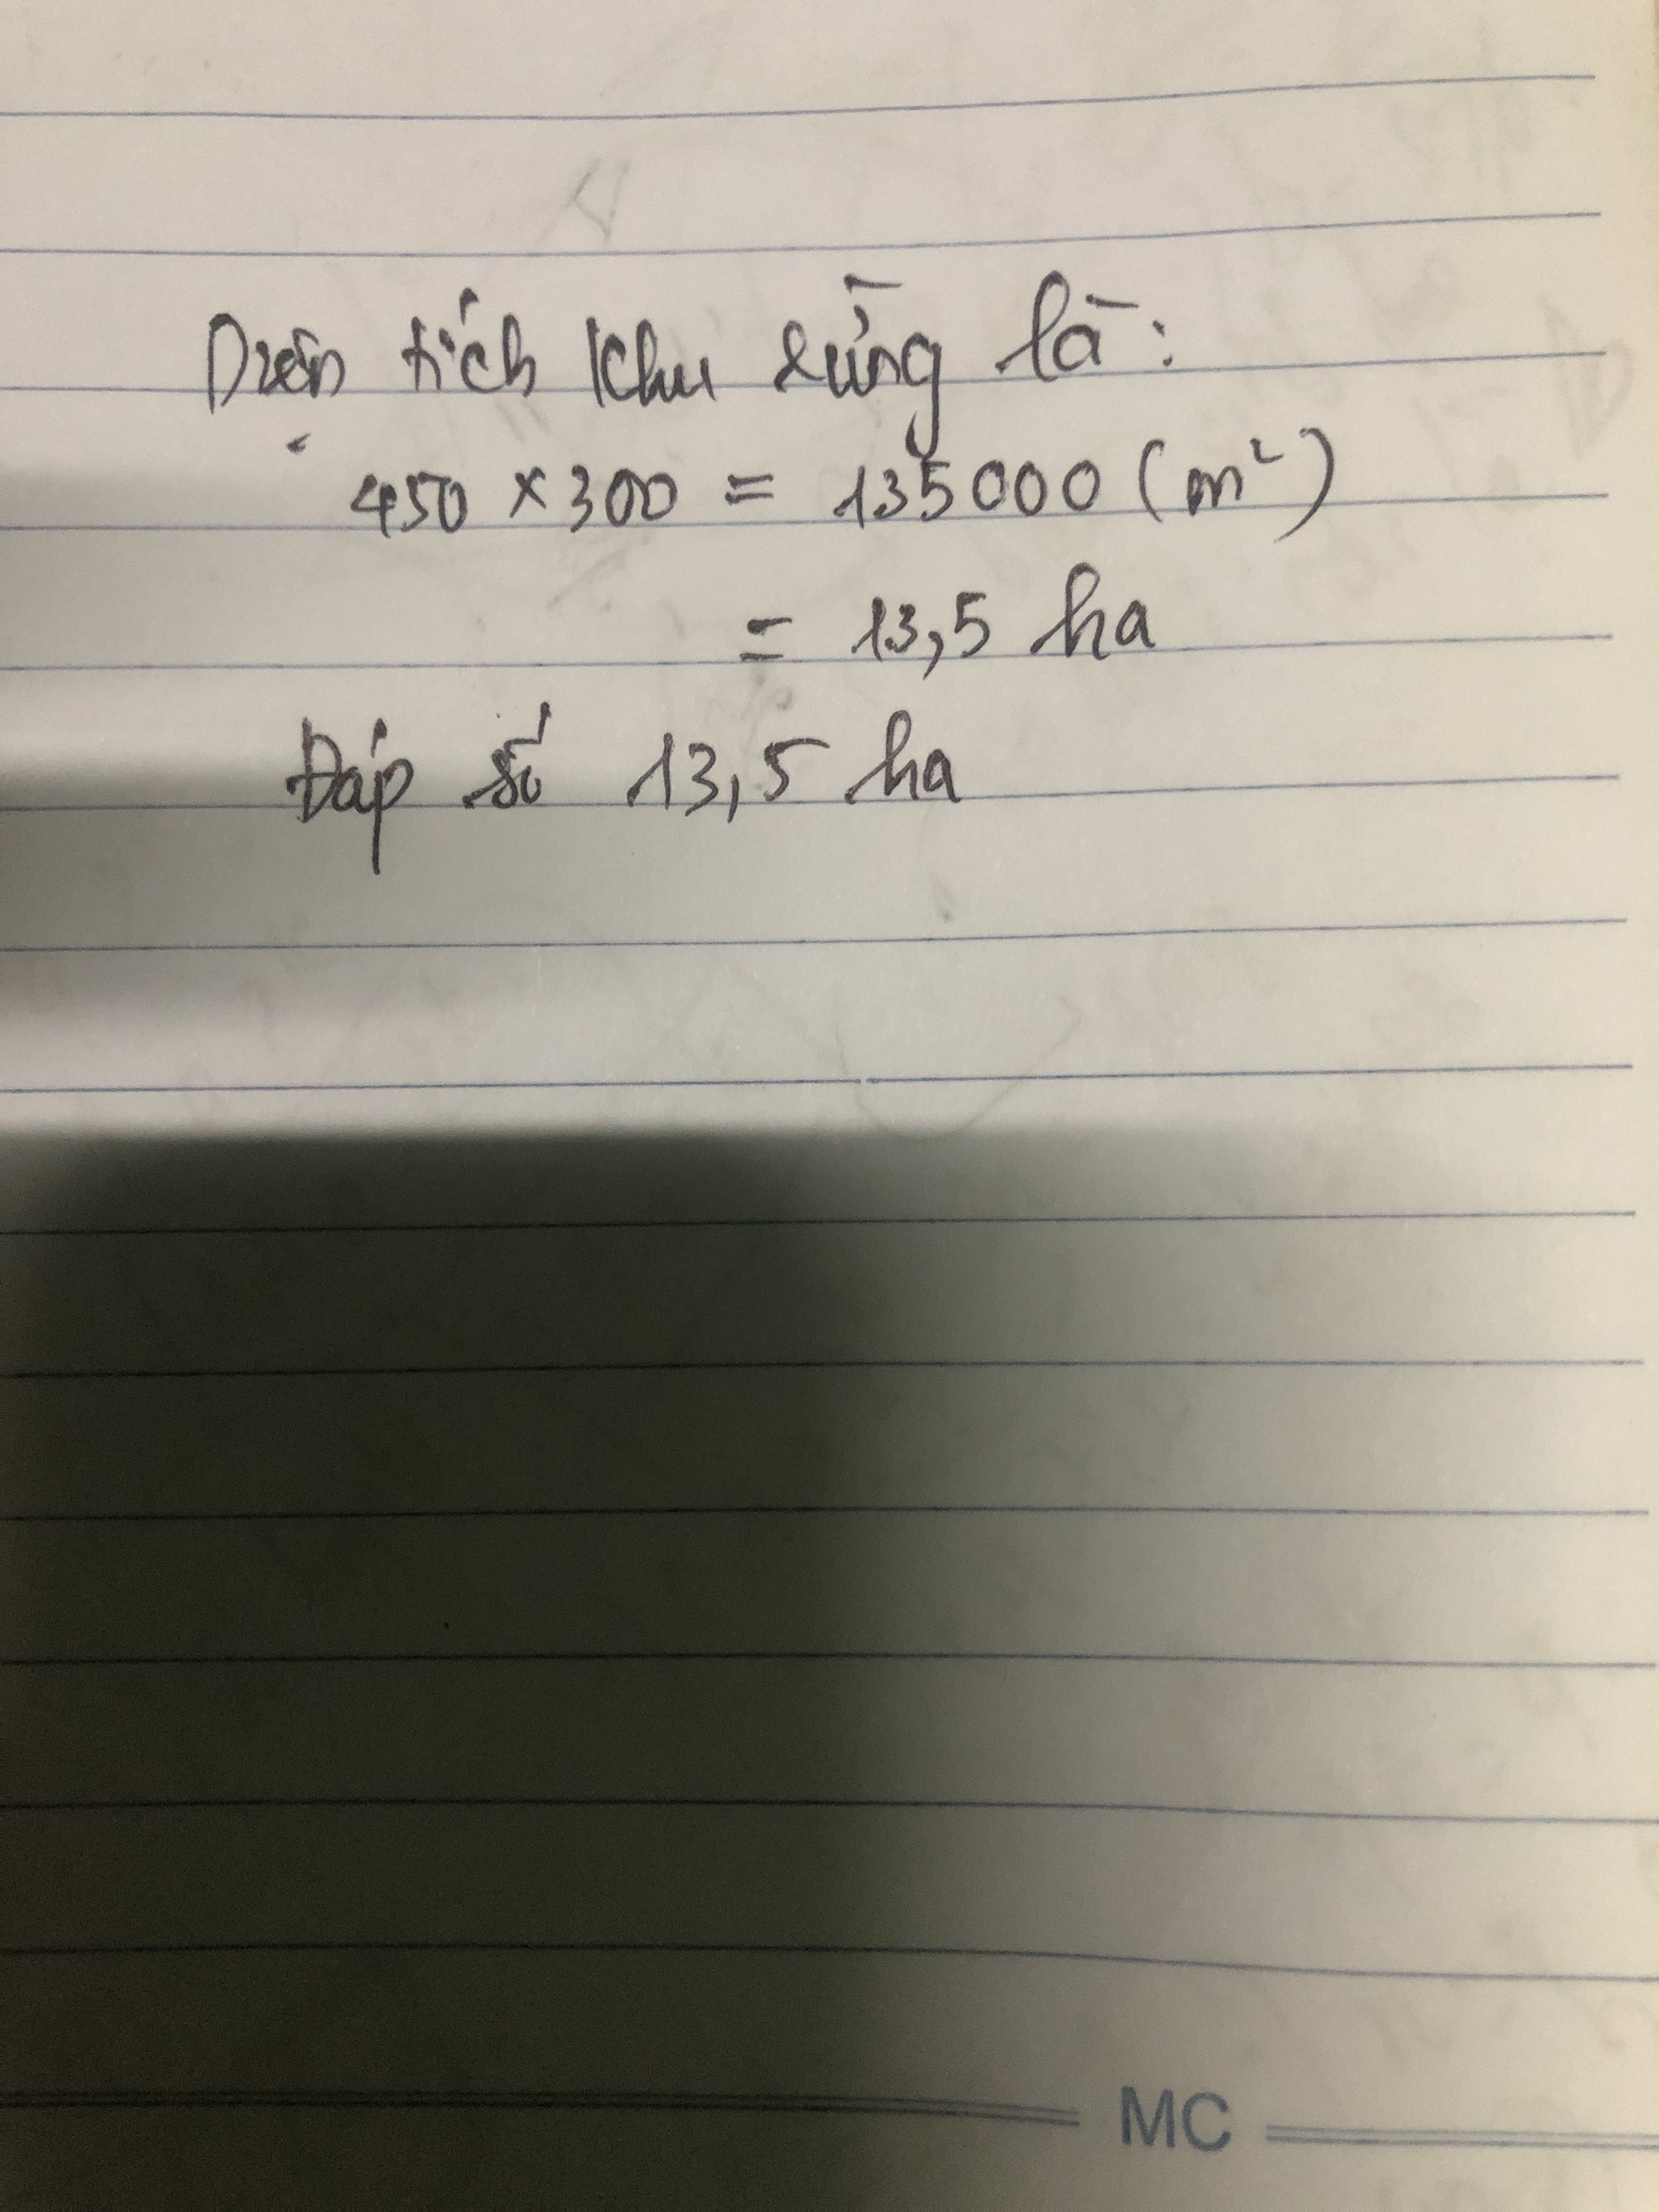 Diện tích khu rừng là:
450 × 300 = 135000 (m²)
= 13,5 ha
Đáp số 13,5 ha
MC